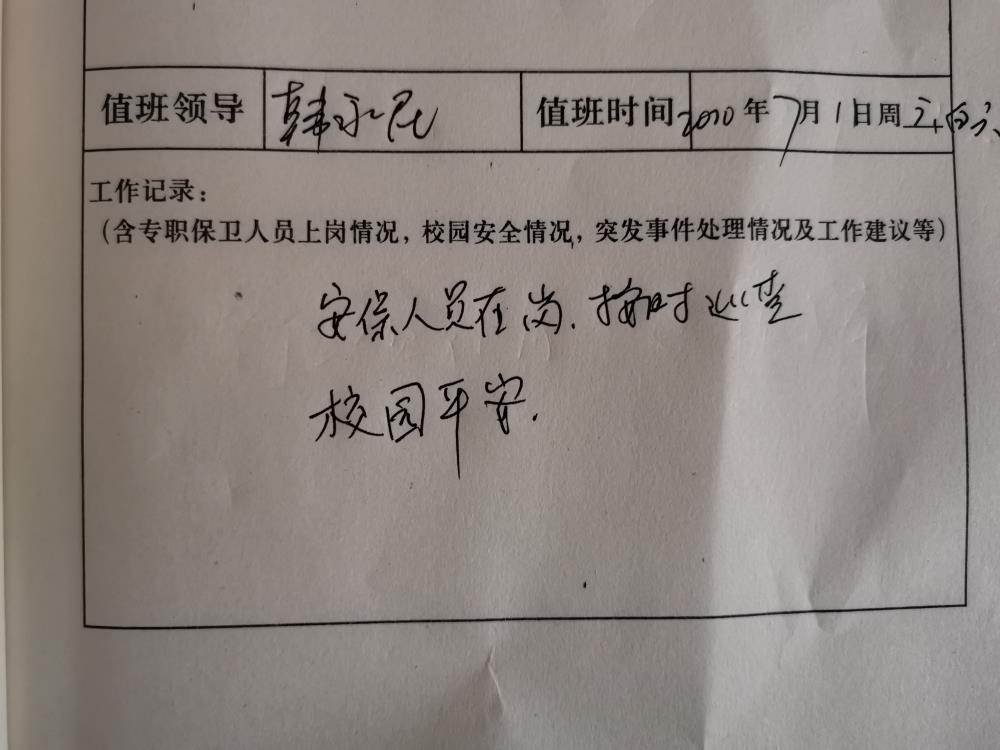 值班领导 韩永民 值班时间 2020年7月1日周三
工作记录：
（含专职保卫人员上岗情况，校园安全情况，突发事件处理情况及工作建议等）
安保人员在岗.按时巡查
校园平安.